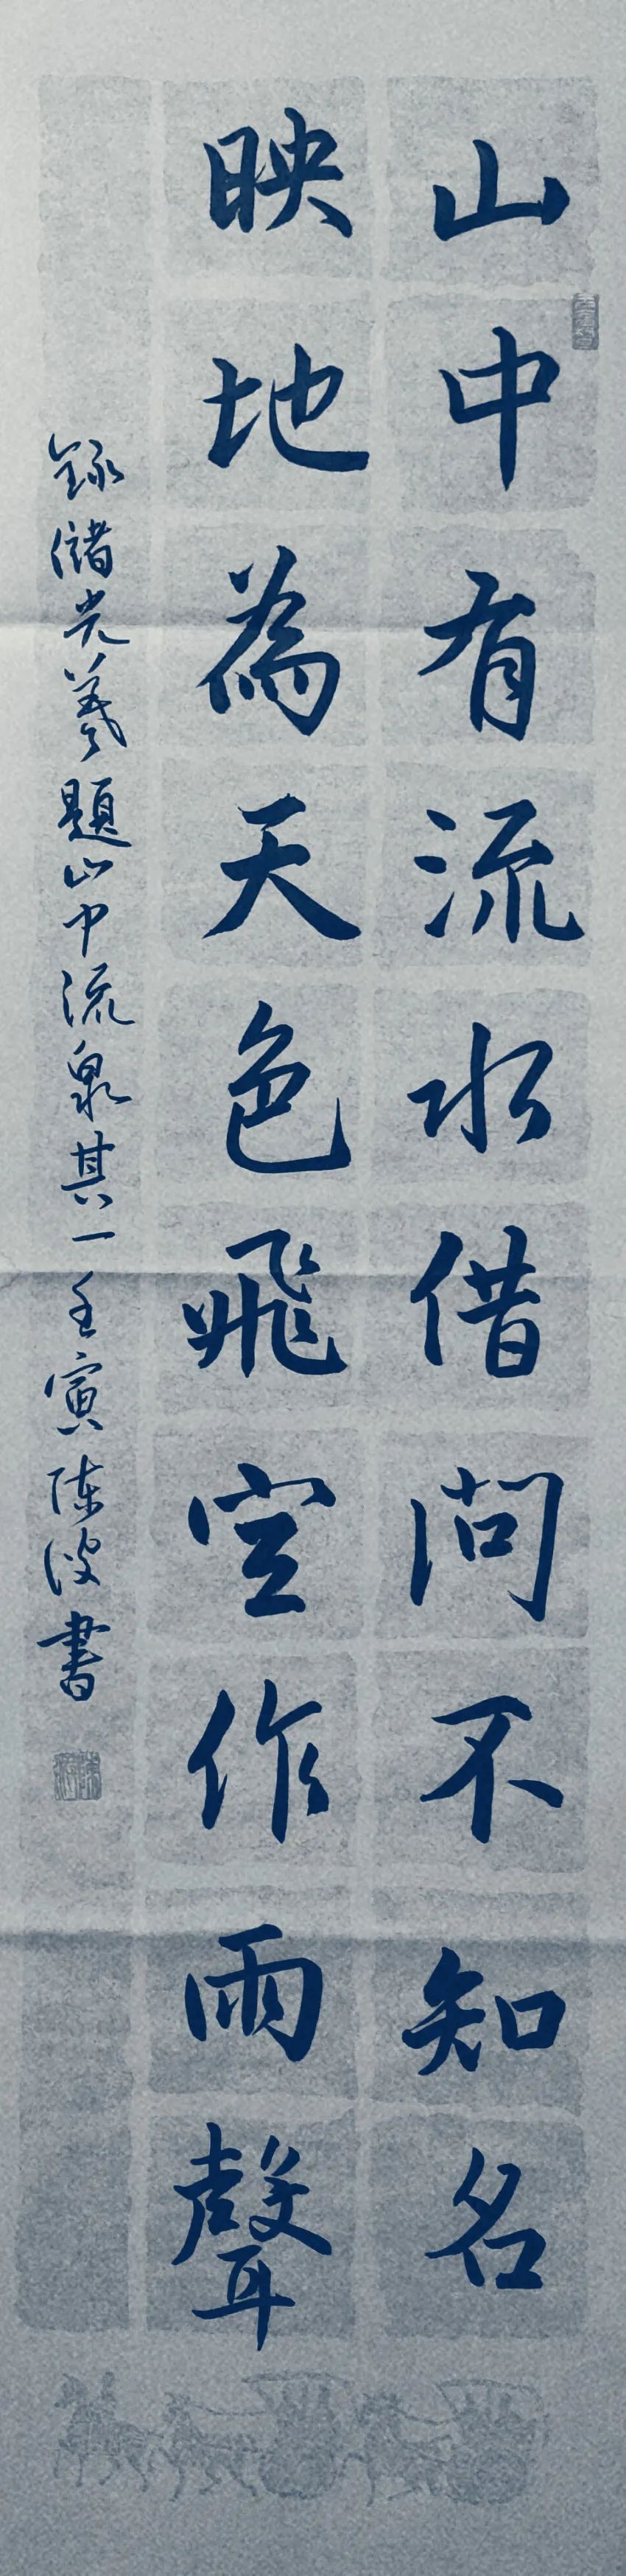 山中有流水借問不知名
映地為天色飛空作雨聲
録儲光羲題山中流泉其一壬寅陳波書